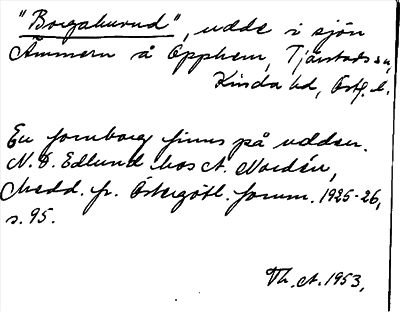 "Borgahuvud", udde i sjön
Ämmern å Opphem, Tjärstads sn,
Kinda hd, Östg. l.
En fornborg finns på udden.
N. D. Edlund hos A. Nordén,
Medd. fr. Östergötl. fornm. 1925-26,
s. 95.
Th. A. 1953,